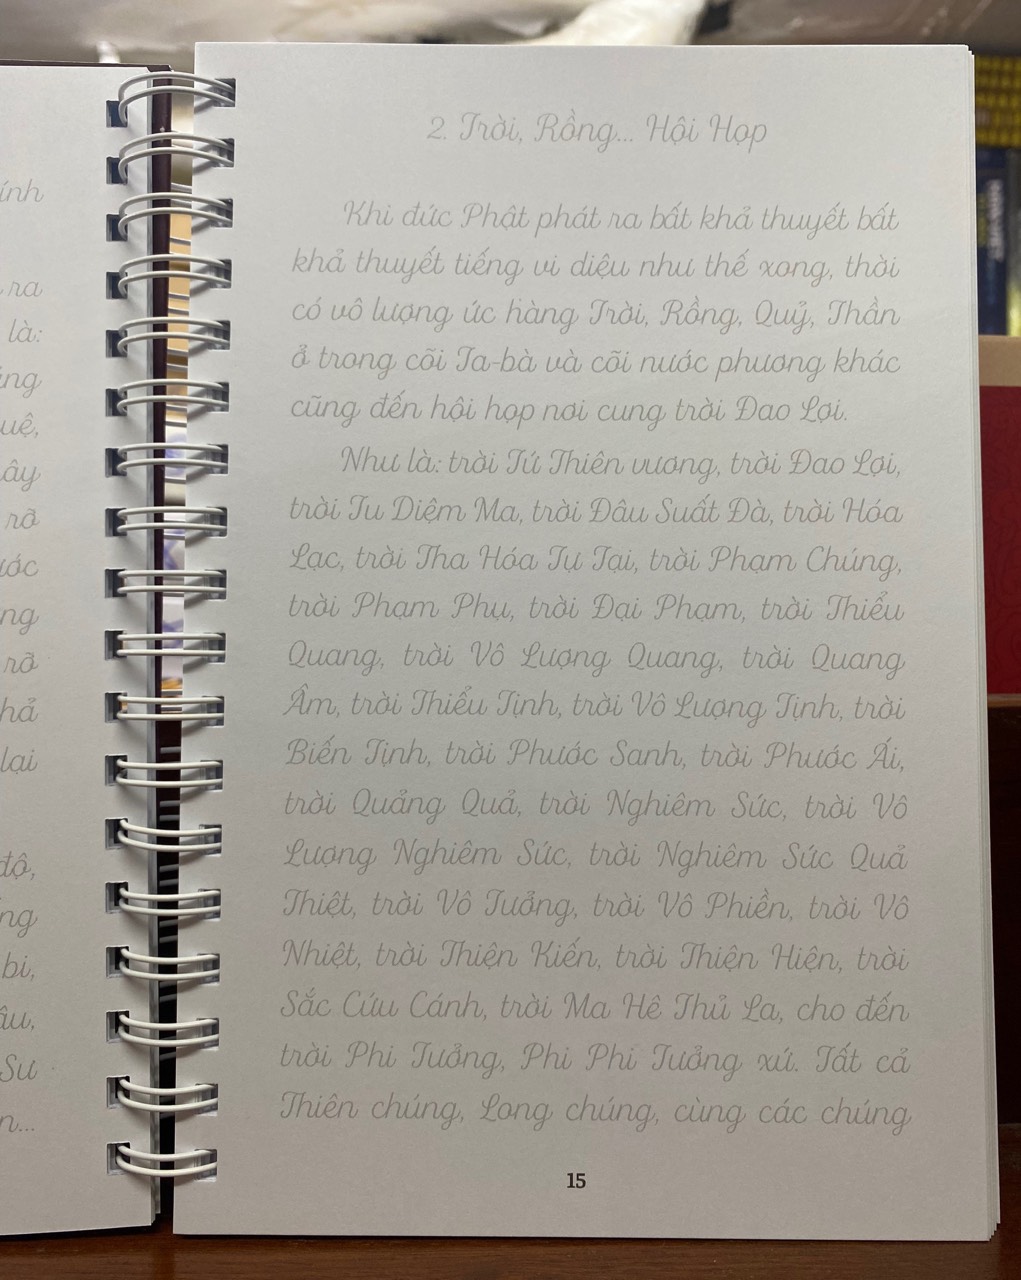 ính
ra
là:
uệ,
ây
rõ
ước
ng
rõ
hả
lại
độ,
bi,
âu,
Sư
n...
2. Trời, Rồng... Hội Họp
Khi đức Phật phát ra bất khả thuyết bất
khả thuyết tiếng vi diệu như thế xong, thời
có vô lượng ức hàng Trời, Rồng, Quỷ, Thần
ở trong cõi Ta-bà và cõi nước phương khác
cũng đến hội họp nơi cung trời Đao Lợi.
Như là: trời Tứ Thiên vương, trời Đao Lợi,
trời Tu Diệm Ma, trời Đâu Suất Đà, trời Hóa
Lạc, trời Tha Hóa Tự Tại, trời Phạm Chúng,
trời Phạm Phụ, trời Đại Phạm, trời Thiểu
Quang, trời Vô Lượng Quang, trời Quang
Âm, trời Thiểu Tịnh, trời Vô Lượng Tịnh, trời
Biến Tịnh, trời Phước Sanh, trời Phước Ái,
trời Quảng Quả, trời Nghiêm Sức, trời Vô
Lượng Nghiêm Sức, trời Nghiêm Sức Quả
Thiệt, trời Vô Tưởng, trời Vô Phiền, trời Vô
Nhiệt, trời Thiện Kiến, trời Thiện Hiện, trời
Sắc Cứu Cánh, trời Ma Hê Thủ La, cho đến
trời Phi Tưởng, Phi Phi Tưởng xứ. Tất cả
Thiên chúng, Long chúng, cùng các chúng
15